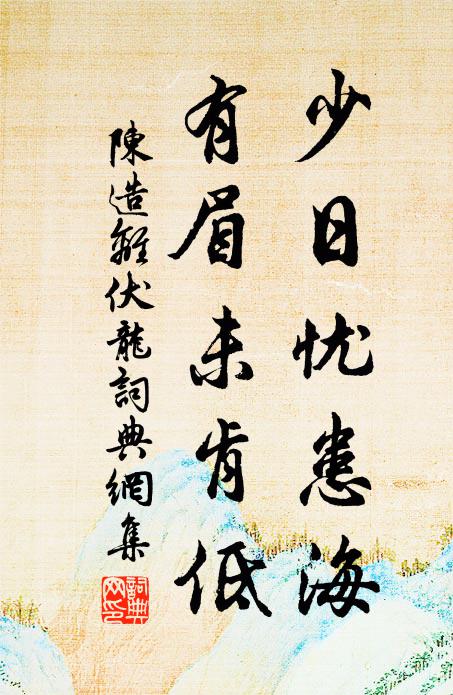 少日忧患海
有眉未肯低
陳造離伏龍詞典網集
詞典網印